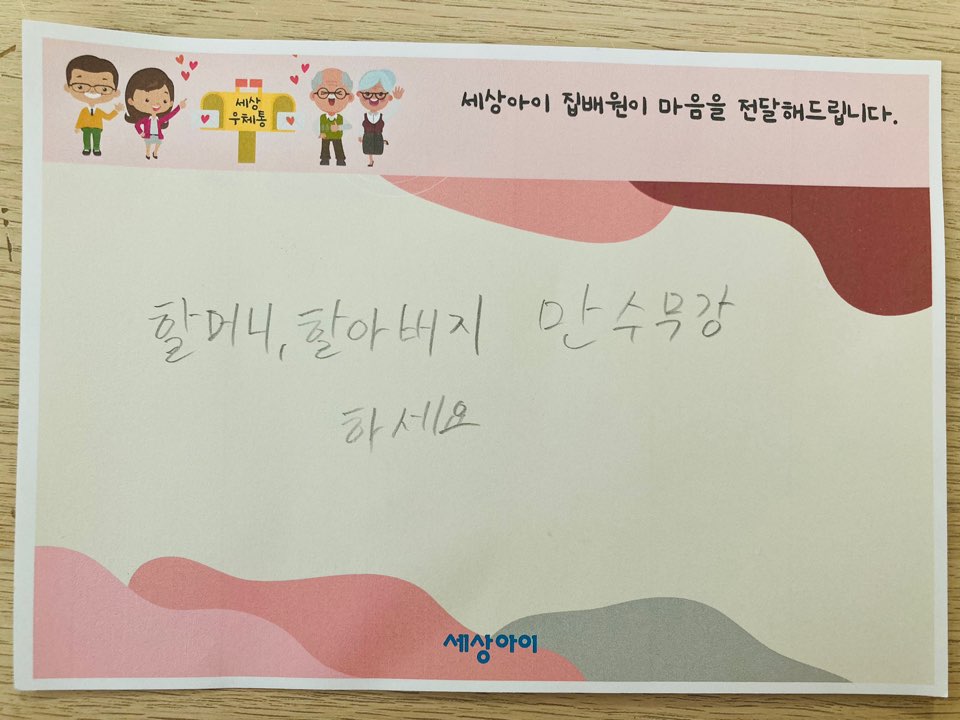 세상
우체통
세상아이 집배원이 마음을 전달해드립니다.
할머니, 할아버지 만수무강
하세요
세상아이